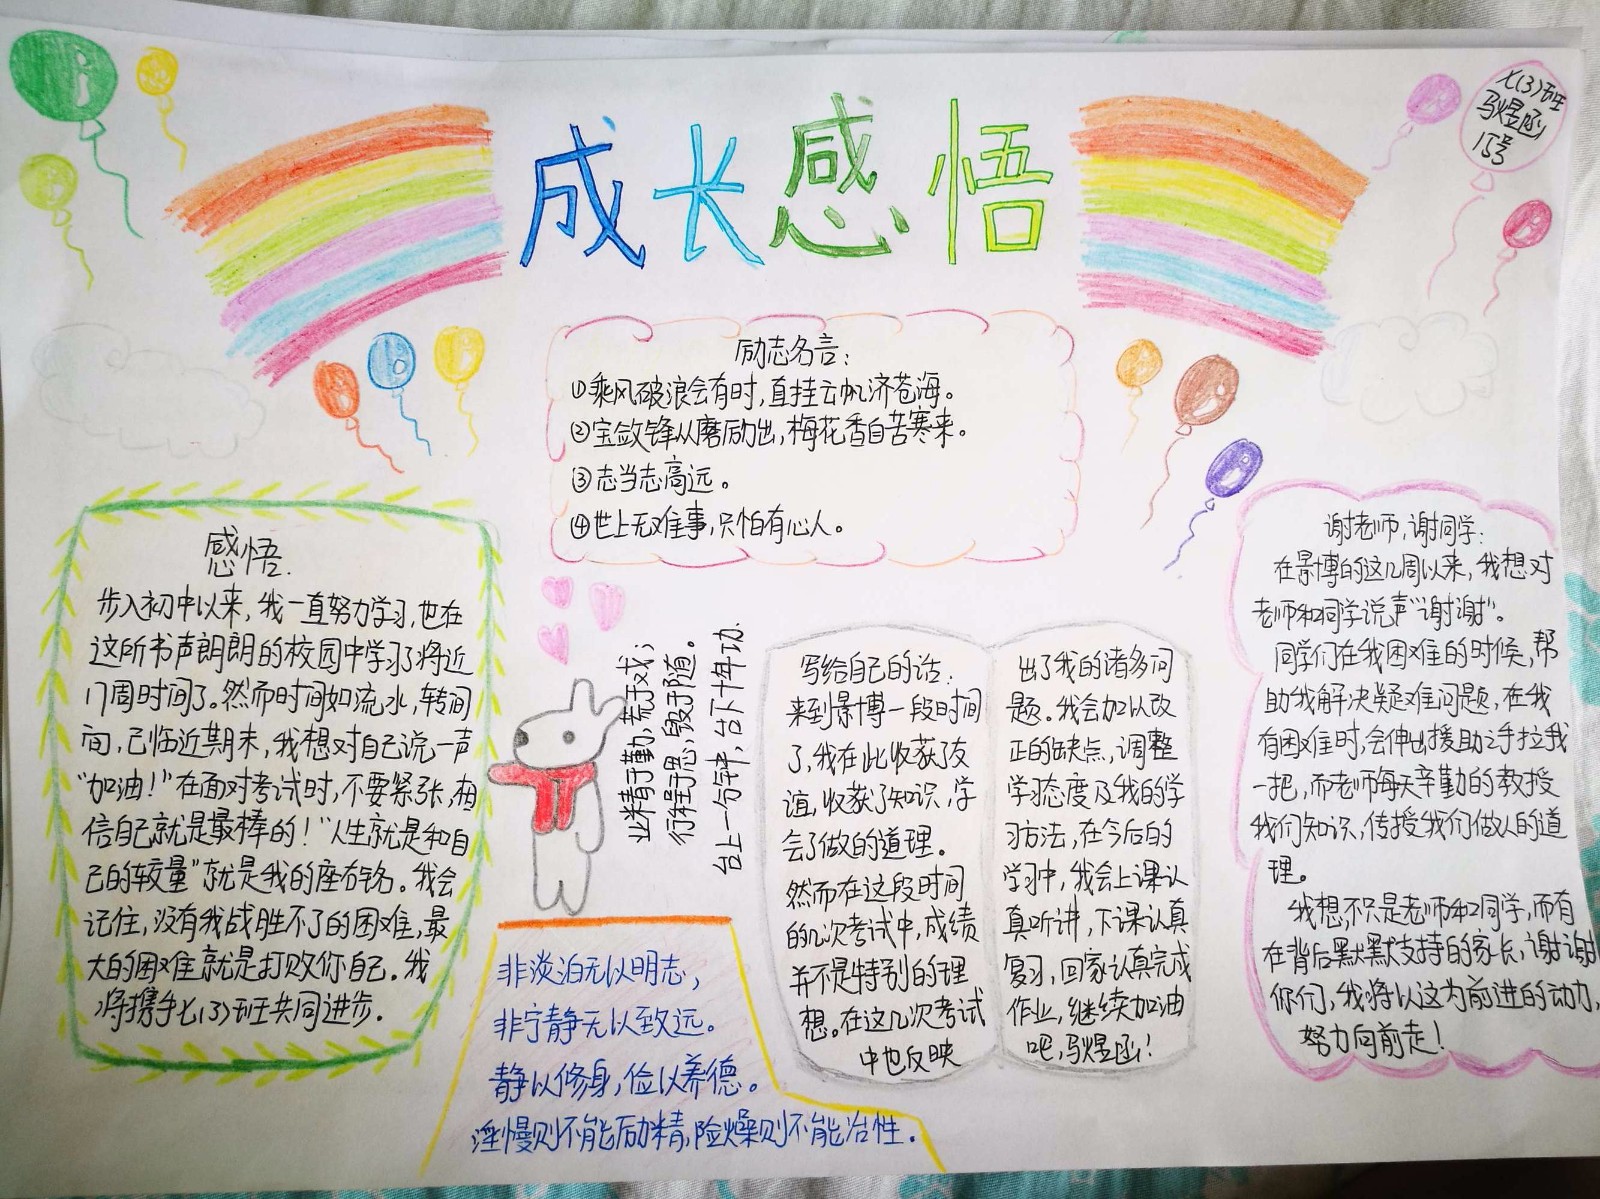 成长感悟
七(3)班
马煜函
15号
励志名言：
①乘风破浪会有时,直挂云帆济苍海。
②宝敛锋从磨励出,梅花香自苦寒来。
③志当志高远。
④世上无难事,只怕有心人。
感悟.
步入初中以来,我一直努力学习,也在
这所书声朗朗的校园中学习了将近
17周时间了。然而时间如流水,转间
间,已临近期末,我想对自己说一声
"加油！"在面对考试时,不要紧张,相
信自己就是最棒的！"人生就是和自
己的较量"就是我的座右铭。我会
记住,没有我战胜不了的困难,最
大的困难就是打败你自己。我
将携手七(3)班共同进步.
业精于勤,荒于戏；
行程于思,毁于随。
台上一分钟,台下十年功.
非淡泊无以明志,
非宁静无以致远。
静以修身,俭以养德。
淫慢则不能励精,险燥则不能冶性.
写给自己的话：
来到景博一段时间
了,我在此收获了友
谊,收获了知识,学
会了做的道理。
然而在这段时间
的几次考试中,成绩
并不是特别的理
想。在这几次考试
中也反映
出了我的诸多问
题。我会加以改
正的缺点,调整
学习态度及我的学
习方法,在今后的
学习中,我会上课认
真听讲,下课认真
复习,回家认真完成
作业,继续加油
吧,马煜函！
谢老师,谢同学：
在景博的这几周以来,我想对
老师和同学说声"谢谢"。
同学们在我困难的时候,帮
助我解决疑难问题,在我
有困难时,会伸出援助之手拉我
一把,而老师每天辛勤的教授
我们知识,传授我们做人的道
理。
我想,不只是老师和同学,而有
在背后默默支持的家长,谢谢
你们,我将以这为前进的动力,
努力向前走！